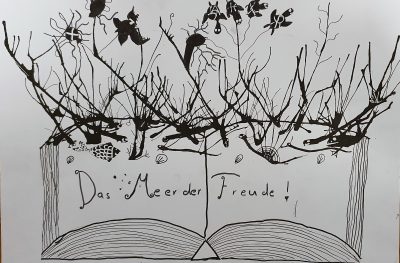 Das Meer der Freude!